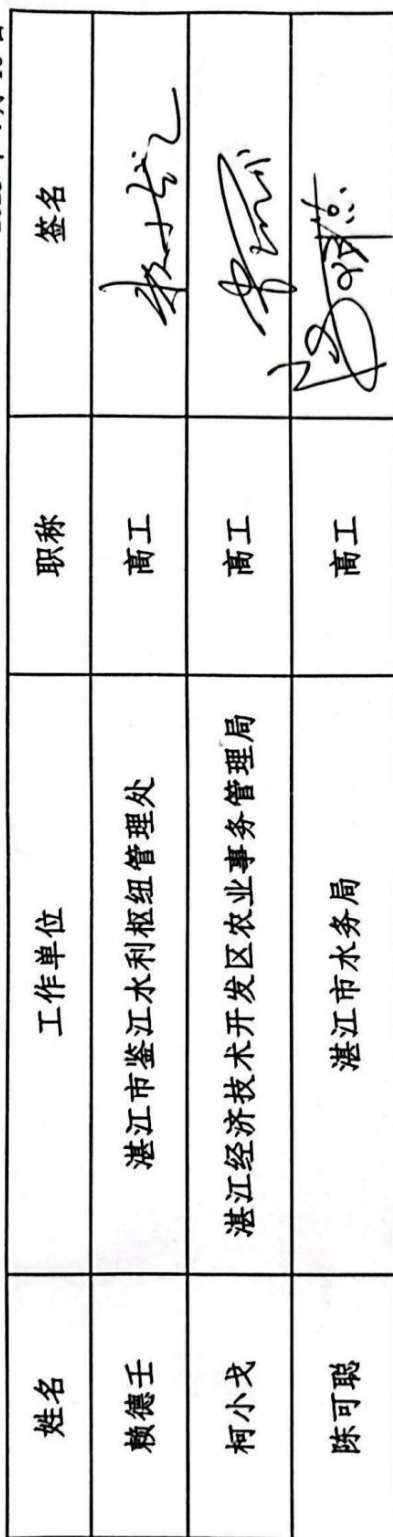 姓名 工作单位 职称 签名
赖德壬 湛江市鉴江水利枢纽管理处 高工
柯小戈 湛江经济技术开发区农业事务管理局 高工
陈可聪 湛江市水务局 高工